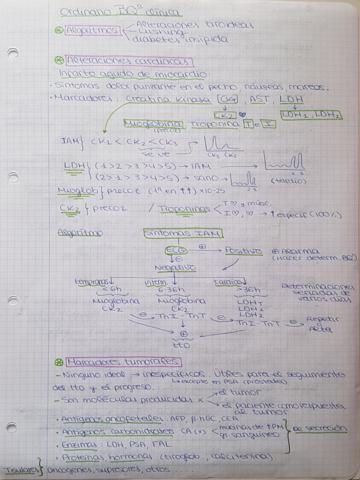 Ordinario BQª clínica
Algoritmos
Alteraciones tiroideas
Cushing
diabetes insípida
Alteraciones cardíacas
Infarto agudo de miocardio
- Síntomas dolor punzante en el pecho, náuseas
- Marcadores: creatina kinasa (CK), AST, LDH
CK2 LDH1, LDH2
Mioglobina Troponina T e I
IAM CK1 < CK2 < CK3
LDH (1>2>3>4>5) → IAM
(2>1>3>4>5) → sano
Mioglob precoz (1º en ↑↑)
CK2 precoz / Troponinas
Algoritmo Síntomas IAM
ECG ⊕ Positivo → Alarma
Negativo
temprano interm tardío
<6h 6-36h >36h
Mioglobina Mioglobina LDH1
CK2 CK2 LDH2
TnI TnT TnI TnT
Determinaciones seriadas de varios días
Repetir y alta
tto
Marcadores tumorales
- Ninguno ideal → inespecíficos. Útiles para el seguimiento
del tto y el progreso. excepto en PSA (próstata)
- Son moléculas producidas x el tumor
el paciente como respuesta
al tumor
- Antígenos oncofetales: AFP, β-HCG, CEA
- Antígenos carbohidratos CA (x) de secreción
gr. sanguíneos
- Enzimas: LDH, PSA, FAL
- Proteínas hormona (tiroglob, calcitonina)
Tisulares oncogenes, supresores, otros...